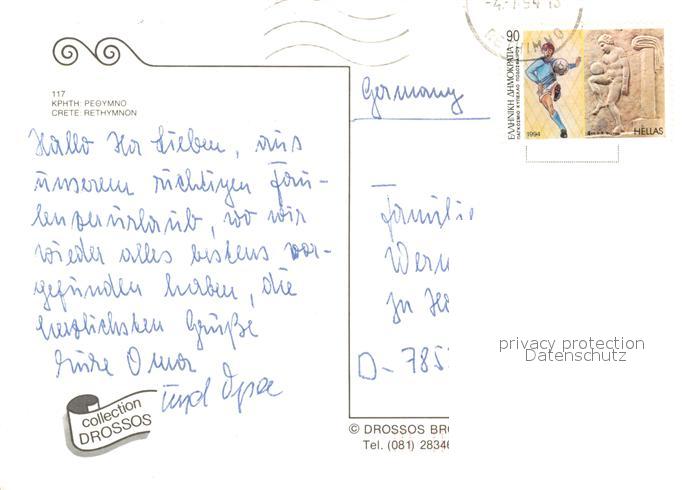 117
ΚΡΗΤΗ: ΡΕΘΥΜΝΟ
CRETE: RETHYMNON
Hallo Ihr Lieben, aus
unserem richtigen Fau-
lenzerurlaub, wo wir
wieder alles bestens vor-
gefunden haben, die
herzlichsten Grüße
Eure Oma
und Opa
collection
DROSSOS
-4.-7.94 18
ΡΕΘΥΜΝΟ
90
ΕΛΛΗΝΙΚΗ ΔΗΜΟΚΡΑΤΙΑ
ΠΑΓΚΟΣΜΙΟ ΚΥΠΕΛΛΟ ΠΟΔΟΣΦΑΙΡΟΥ
1994
HELLAS
Germany
Familie
Wern
D-785
privacy protection
Datenschutz
© DROSSOS BRO
Tel. (081) 28346